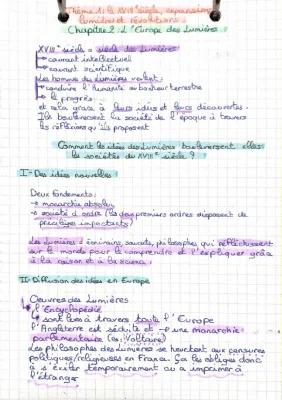 Thème 1: le XVIIIe siècle, expansions,
lumières et révolutions
Chapitre 2: L'Europe des Lumières
XVIIIe siècle = siècle des Lumières
→ courant intellectuel
→ courant scientifique
Les hommes des Lumières veulent:
→ conduire l'humanité au bonheur terrestre
→ le progrès
et cela grâce à leurs idées et leurs découvertes.
Ils bouleversent la société de l'époque à travers
les réflexions qu'ils proposent
Comment les idées des Lumières bouleversent elles
les sociétés du XVIIIe siècle ?
I - Des idées nouvelles
Deux fondements:
→ monarchie absolue
→ société d'ordre (les deux premiers ordres disposent de
privilèges importants)
Les Lumières = écrivains, savants, philosophes qui réfléchissent
sur le monde pour le comprendre et l'expliquer grâce
à la raison et à la science.
II - Diffusion des idées en Europe
Oeuvres des Lumières
→ l'Encyclopédie
→ sont lues à travers toute l'Europe
l'Angleterre est séduite et → a une monarchie
parlementaire (ex: Voltaire)
Les philosophes des Lumières se heurtent aux censures
politiques/religieuses en France. Ça les obliges donc
à s'exiler temporairement ou à imprimer à
l'étranger